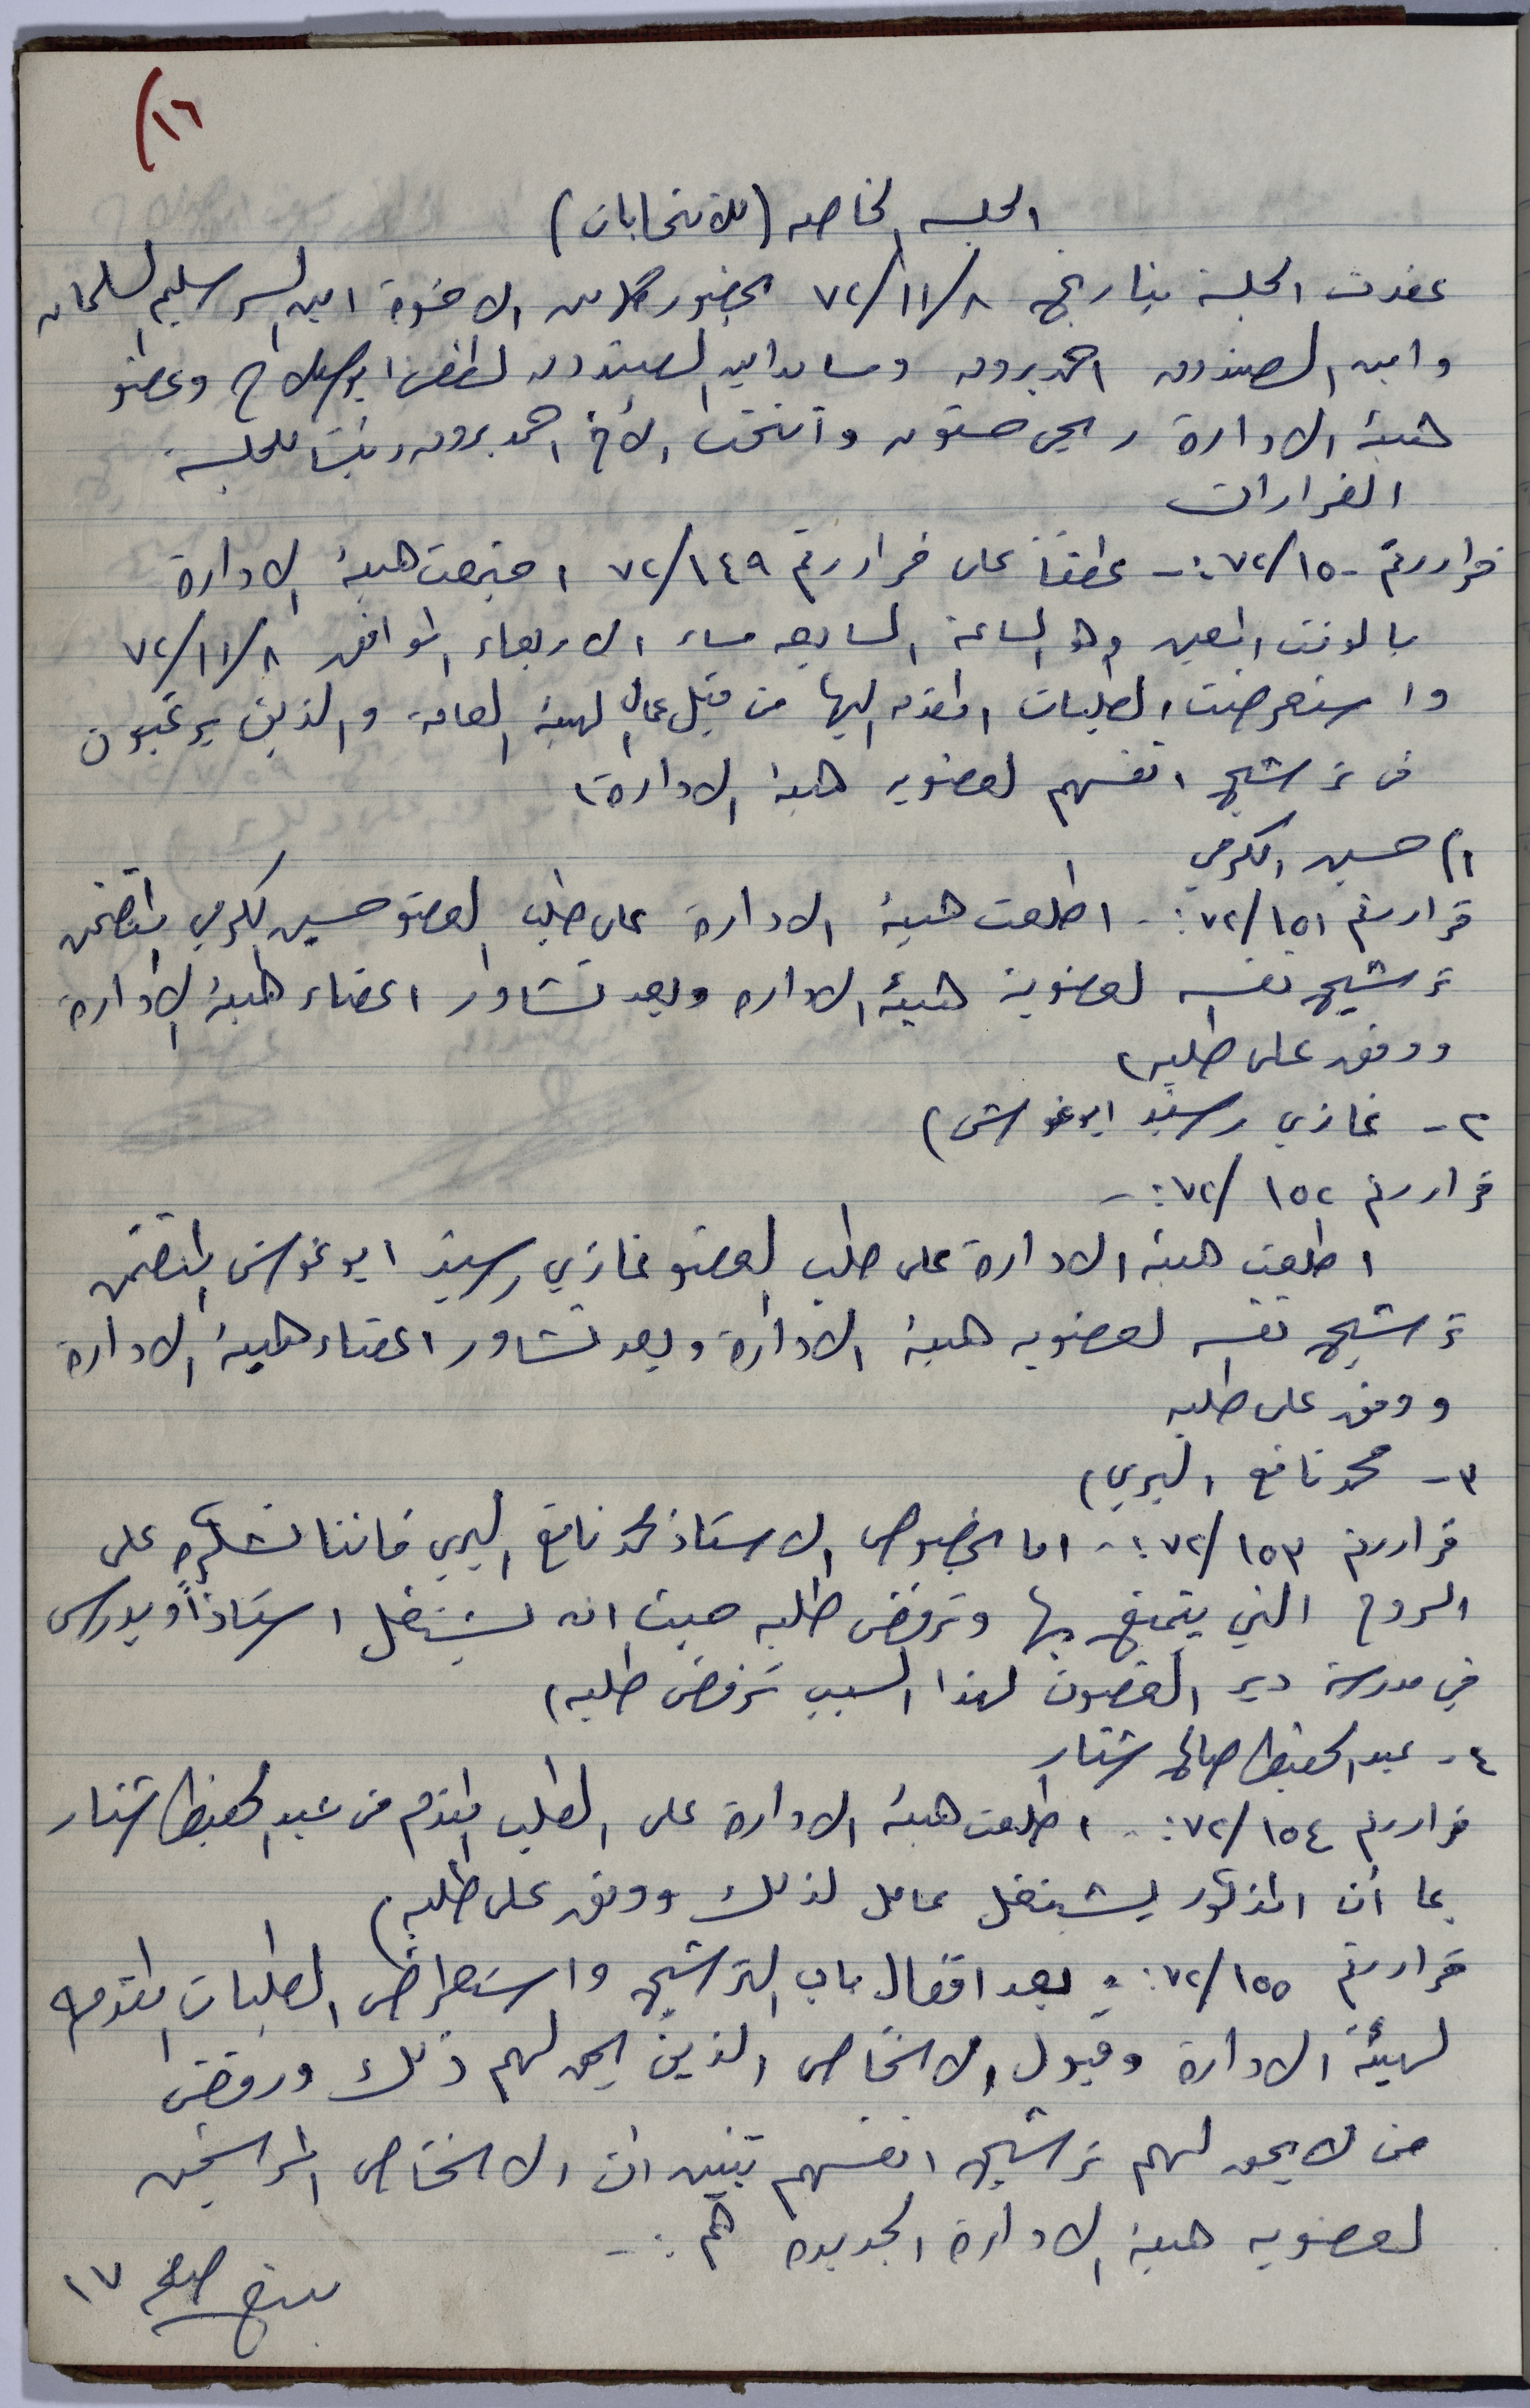 ١٦)
الجلسه الخاصه (للانتخابات)
عقدت الجلسة بتاريخ ٧٢/١١/٨ بحضور كلا من الاخوة امين السر سليم السلمان
وامين الصندوق احمد برو وساعد امين الصندوق لطفي ابو صلاح وعضو
هيئة الادارة ربحي حستون وانتخب الأخ احمد برو رئيسا للجلسة
القرارات
قرار رقم ٧٢/١٥٠ :- عطفاً على قرار رقم ٧٢/١٤٩ اجتمعت هيئة الادارة
بالوقت المعين وهو الساعة السابعه مساء الاربعاء الموافق ٧٢/١١/٨
واستعرضت الطلبات المقدمه اليها من قبل عمال الهيئة العامة والذين يرغبون
في ترشيح انفسهم لعضويه هيئة الادارة)
١) حسين الكرمي
قرار رقم ٧٢/١٥١ :- اطلعت هيئة الادارة على طلب العضو حسين الكرمي المتضمن
ترشيح نفسه لعضوية هيئة الاداره وبعد تشاور اعضاء هيئة الادارة
ووفق على طلبه)
٢- غازي رشيد ابو غوش)
قرار رقم ٧٢/١٥٢ :-
اطلعت هيئة الادارة على طلب العضو غازي رشيد ابو غوش المتضمن
ترشيح نفسه لعضويه هيئة الادارة وبعد تشاور اعضاء هيئة الادارة
ووفق على طلبه
٣- محمد نافع البري)
قرار رقم ٧٢/١٥٣ :- اما بخصوص الاستاذ محمد نافع البري فاننا نشكره على
الروح التي يتمتع بها ونرفض طلبه حيث انه يشتغل استاذاً ويدرس
في مدرسة دير الغصون لهذا السبب نرفض طلبه)
٤- عبد الحفيظ صالح شتار
قرار رقم ٧٢/١٥٤ :- اطلعت هيئة الادارة على الطلب المقدم من عبد الحفيظ شتار
بما أن المذكور يشتغل عامل لذلك ووفق على طلبه)
قرار رقم ٧٢/١٥٥ :- بعد اقفال باب الترشيح واستعراض الطلبات المقدمه
لهيئة الادارة وقبول الاشخاص الذين يحق لهم ذلك ورفض
من لا يحق لهم ترشيح انفسهم تبين ان الاشخاص المرشحين
لعضويه هيئة الادارة الجديده هم :-
يتبع صفحه ١٧